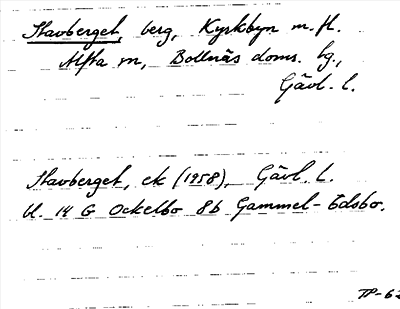 Stavberget, berg, Kyrkbyn m.fl.
Alfta sn, Bollnäs doms. hg.,
Gävl. l.
Stavberget, ek (1958), Gävl. l.
bl. 14 G Ockelbo 8b Gammel-Edsbo.
TP-62